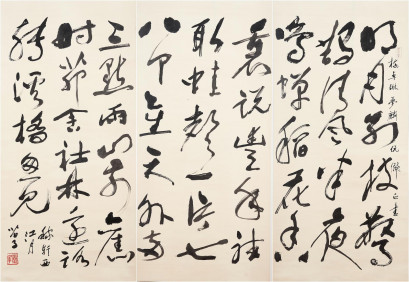 明月別枝驚
鵲清風半夜
鳴蟬稻花香
裏說豐年聽
取蛙聲一片七
八个星天外兩
三點雨山前舊
時茆舍社林邊路
轉溪橋忽見
稼軒西
江月